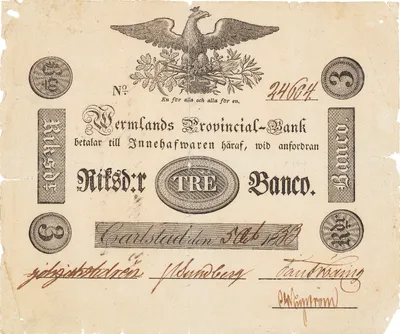 En för alla och alla för en.
No. 24604.
3
Wermlands Provincial-Bank
betalar till Innehafwaren häraf, wid anfordran
Riksd:r TRE Banco.
Riksd:r
Banco.
3
Rdr
Carlstad den 5 Oct 1833